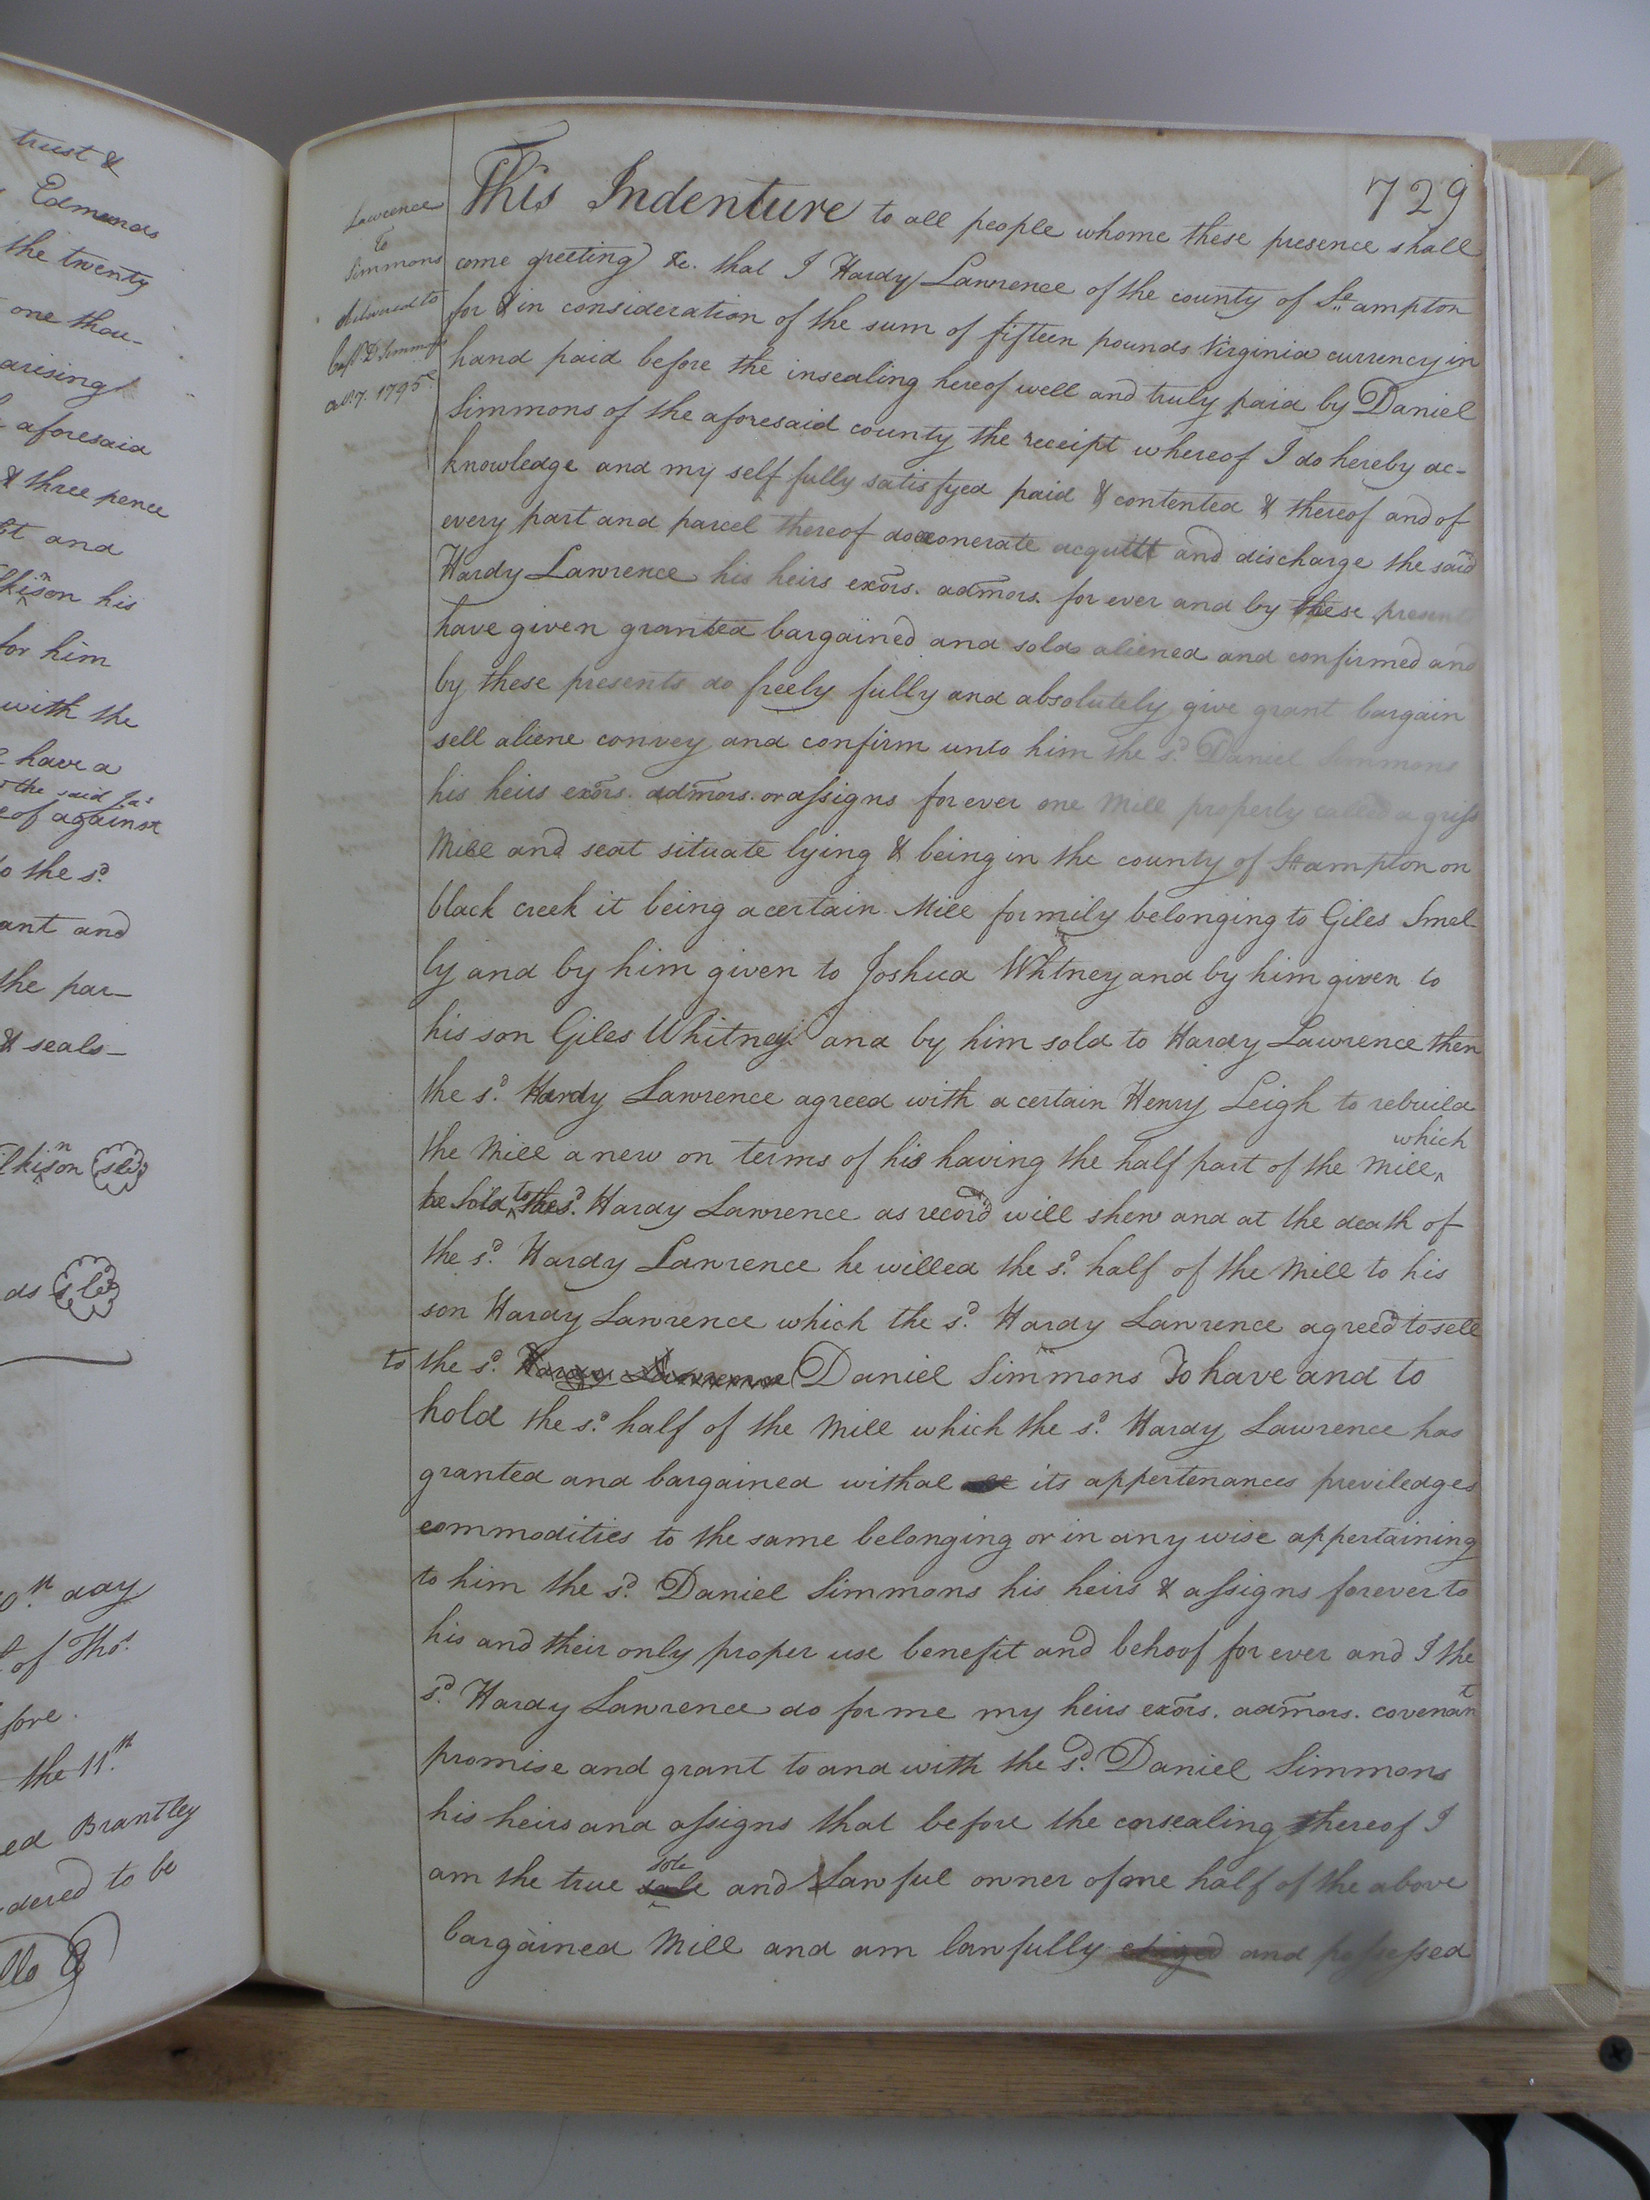 trust &
Edmunds
the twenty
one thou-
arising
aforesaid
& three pence
and
his
for him
with the
have a
the said Jas
eof against
to the sd.
ant and
the par-
& seals-
day
of Thos.
fore.
the 11th.
ed Brantley
dered to be
729
Lawrence
To
Simmons
delivered to
Capt D Simmons
1795
This Indenture to all people whome these presence shall
come greeting &c. that I Hardy Lawrence of the county of So.ampton
for & in consideration of the sum of fifteen pounds Virginia currency in
hand paid before the insealing hereof well and truly paid by Daniel
Simmons of the aforesaid county the receipt whereof I do hereby ac-
knowledge and my self fully satisfyed paid & contented & thereof and of
every part and parcel thereof do exonerate acquitt and discharge the said
Hardy Lawrence his heirs exors. admors. for ever and by these present
have given granted bargained and sold aliened and confirmed and
by these presents do freely fully and absolutely give grant bargain
sell aliene convey and confirm unto him the sd. Daniel Simmons
his heirs exors. admors. or assigns for ever one Mill properly called a griss
Mill and seat situate lying & being in the county of So.ampton on
black creek it being a certain Mill formily belonging to Giles Smel-
ly and by him given to Joshua Whitney and by him given to
his son Giles Whitney and by him sold to Hardy Lawrence then
the sd. Hardy Lawrence agreed with a certain Henry Leigh to rebuild
the Mill a new on terms of his having the half part of the Mill which
he sold to the sd. Hardy Lawrence as record will shew and at the death of
the sd. Hardy Lawrence he willed the sd. half of the Mill to his
son Hardy Lawrence which the sd. Hardy Lawrence agreed to sell
to the sd. Hardy Lawrence Daniel Simmons To have and to
hold the sd. half of the Mill which the sd. Hardy Lawrence has
granted and bargained withal its appertenances previledges
commodities to the same belonging or in any wise appertaining
to him the sd. Daniel Simmons his heirs & assigns forever to
his and their only proper use benefit and behoof for ever and I the
sd. Hardy Lawrence do for me my heirs exors. admors. covenant
promise and grant to and with the sd. Daniel Simmons
his heirs and assigns that before the ensealing thereof I
am the true sole and Lawful owner of one half of the above
bargained Mill and am lawfully and possessed